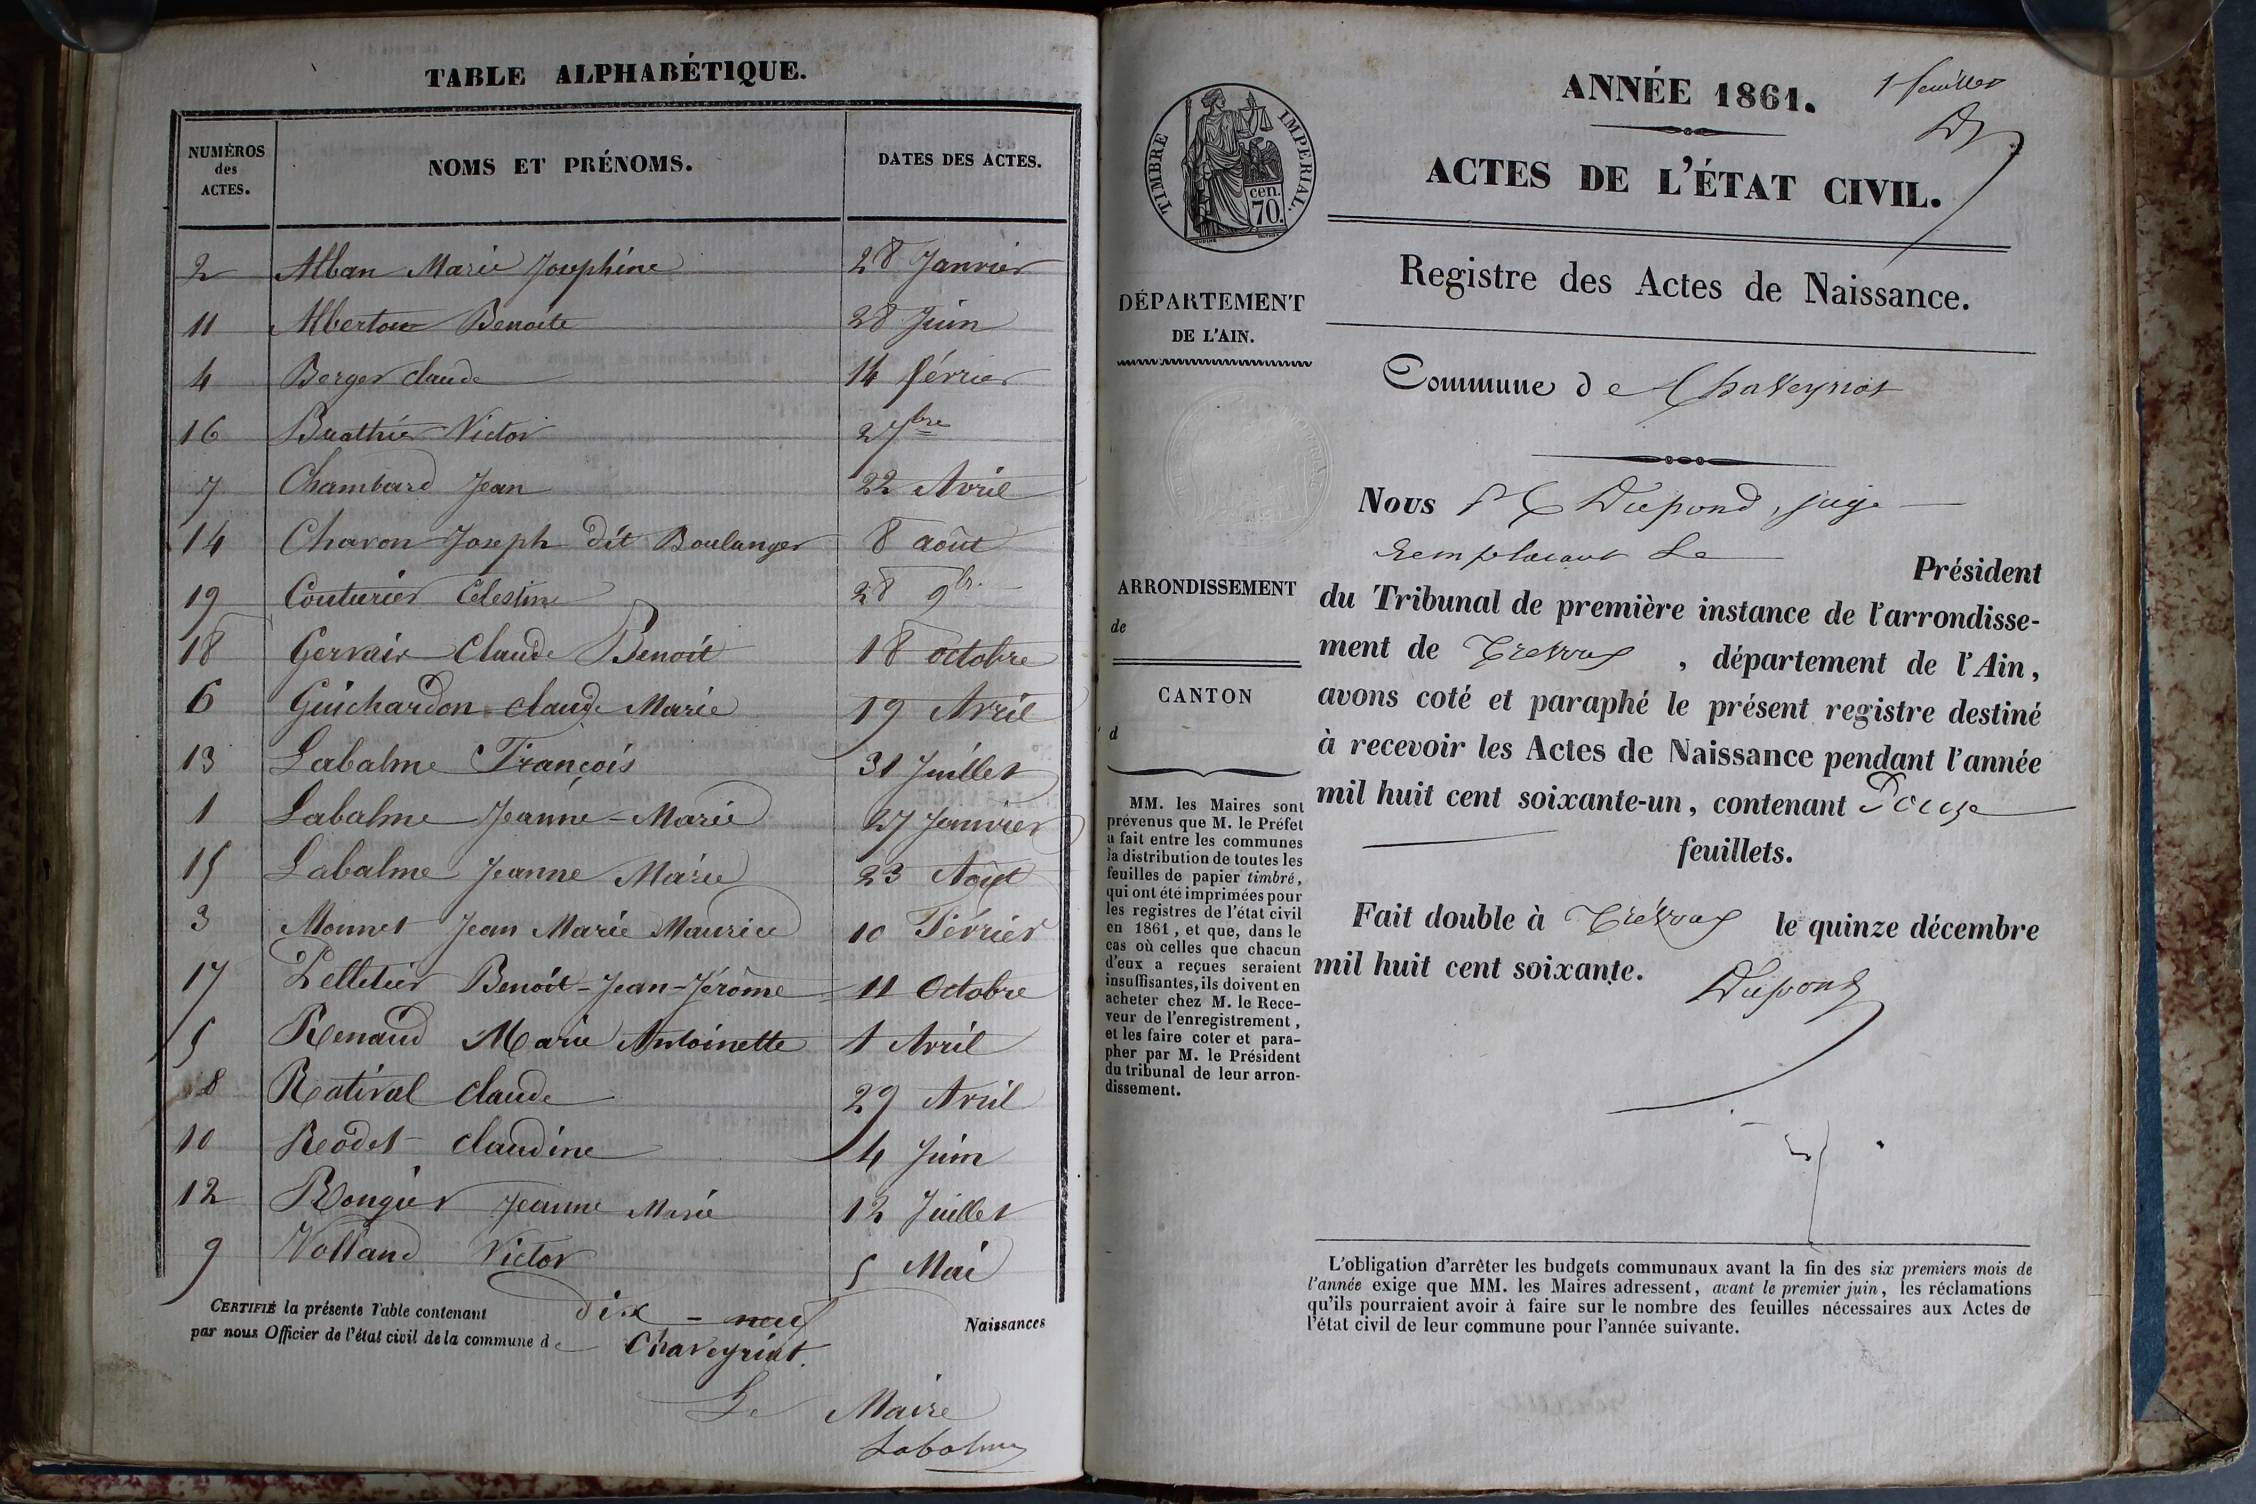 TABLE ALPHABÉTIQUE.
NUMÉROS
des
ACTES.
NOMS ET PRÉNOMS.
DATES DES ACTES.
2 Alban Marie Josephine 28 Janvier
11 Benoite 28 Juin
4 Berger Claude 14 février
16 Victor 2 7bre
7 Chambard Jean 22 Avril
14 Charon Joseph dit Boulanger 8 août
19 Couturier Célestin 28 9br.
18 Gervais Claude Benoit 18 octobre
6 Guichardon claude Marie 19 Avril
13 Labalme François 31 Juillet
1 Labalme Jeanne-Marie 27 Janvier
15 Labalme Jeanne Marie 23 Août
3 Monnet Jean Marie Maurice 10 Février
17 Pelletier Benoit-Jean-Jérôme 11 Octobre
5 Renaud Marie Antoinette 1 Avril
8 Rativat Claude 29 Avril
10 Reodet Claudine 4 Juin
12 Rongier Jeanne Marie 12 Juillet
9 Volland Victor 5 Mai
CERTIFIÉ la présente Table contenant dix-neuf Naissances
par nous Officier de l'état civil de la commune de Chaveyriat.
Le Maire
Labalme
TIMBRE IMPERIAL.
cen.
70.
DÉPARTEMENT
DE L'AIN.
ARRONDISSEMENT
de
CANTON
d
MM. les Maires sont
prévenus que M. le Préfet
a fait entre les communes
la distribution de toutes les
feuilles de papier timbré,
qui ont été imprimées pour
les registres de l'état civil
en 1861, et que, dans le
cas où celles que chacun
d'eux a reçues seraient
insuffisantes, ils doivent en
acheter chez M. le Rece-
veur de l'enregistrement,
et les faire coter et para-
pher par M. le Président
du tribunal de leur arron-
dissement.
1 feuillet
ANNÉE 1861.
ACTES DE L'ÉTAT CIVIL.
Registre des Actes de Naissance.
Commune de Chaveyriat
Nous Dupond, juge
remplacant Le Président
du Tribunal de première instance de l'arrondisse-
ment de Trevoux, département de l'Ain,
avons coté et paraphé le présent registre destiné
à recevoir les Actes de Naissance pendant l'année
mil huit cent soixante-un, contenant Douze
feuillets.
Fait double à Trévoux le quinze décembre
mil huit cent soixante.
Dupond
L'obligation d'arrêter les budgets communaux avant la fin des six premiers mois de
l'année exige que MM. les Maires adressent, avant le premier juin, les réclamations
qu'ils pourraient avoir à faire sur le nombre des feuilles nécessaires aux Actes de
l'état civil de leur commune pour l'année suivante.